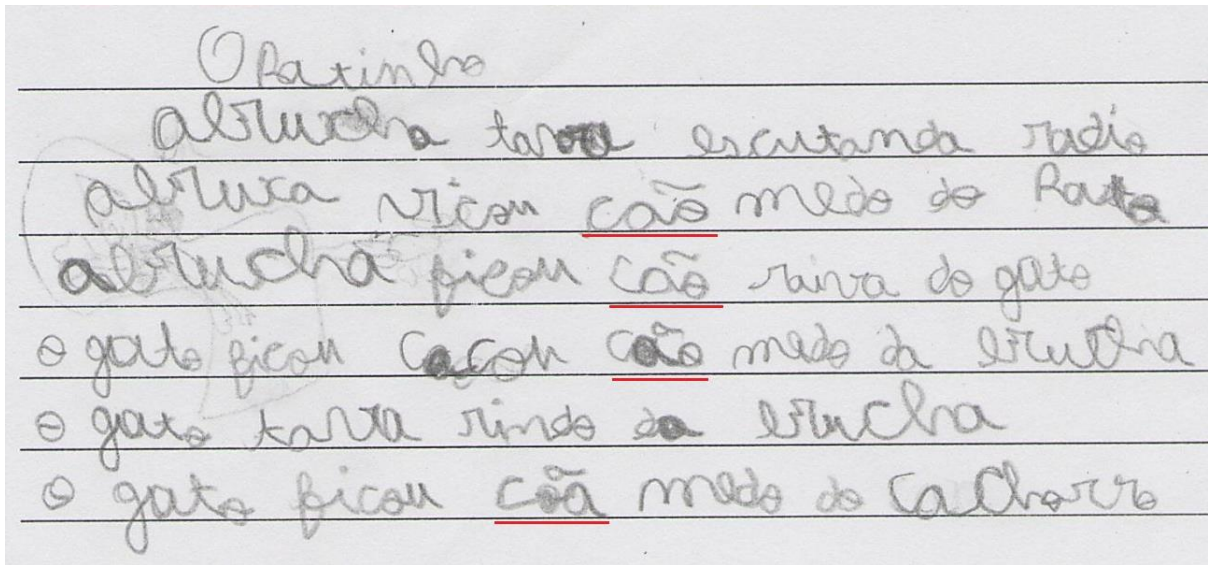 O Ratinho
abrucha tava escutando radio
abruxa vicou cão medo do Rato
abrucha ficou cão raiva do gato
o gato ficou cacou cão medo da brucha
o gato tava rindo da brucha
o gato ficou cõa medo do cachorro